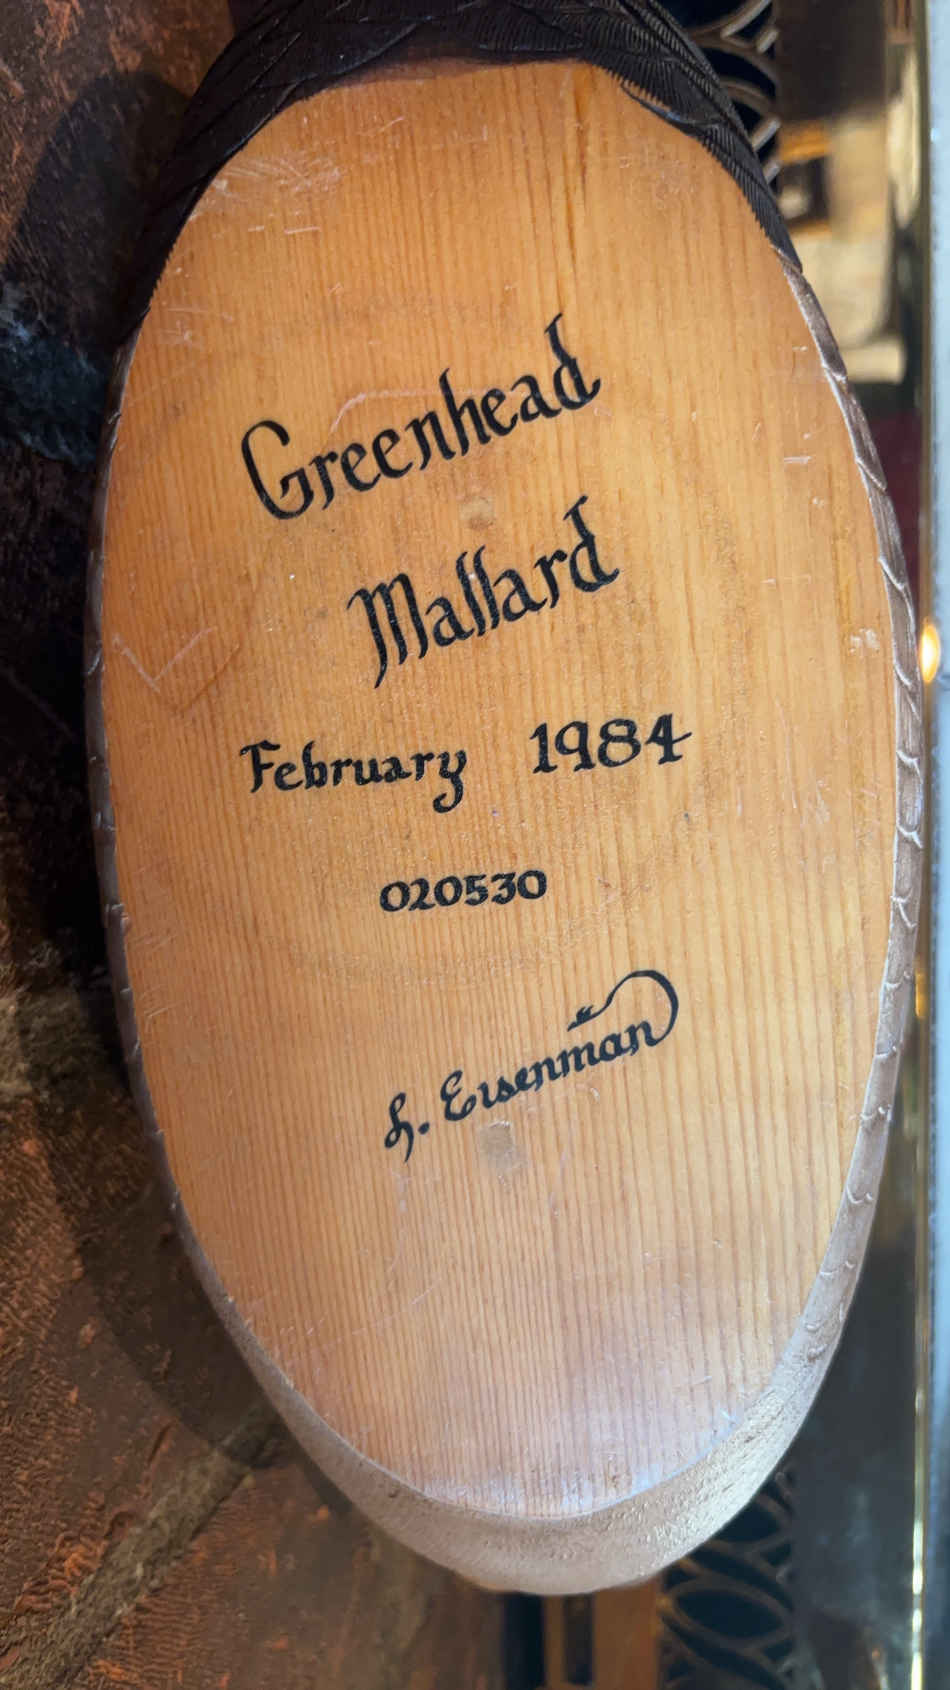 Greenhead
Mallard
February 1984
020530
L. Eisenman